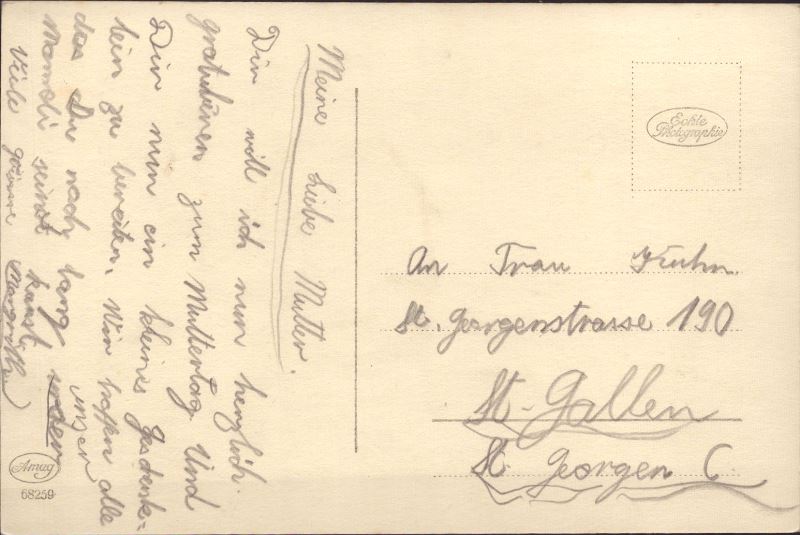 Meine Liebe Mutter.
Dir will ich nun herzlich
gratulieren zum Muttertag. Und
Dir nun ein kleines Gedenk=
lein zu bereiten. Wir hoffen alle
das Du noch lang unser
Mamali seinst kanst,
Viele Grüsse Margrith
Amag
68259
Echte
Photographie
An Frau Kuhn.
St. Georgenstrasse 190
St-Gallen
St Georgen C